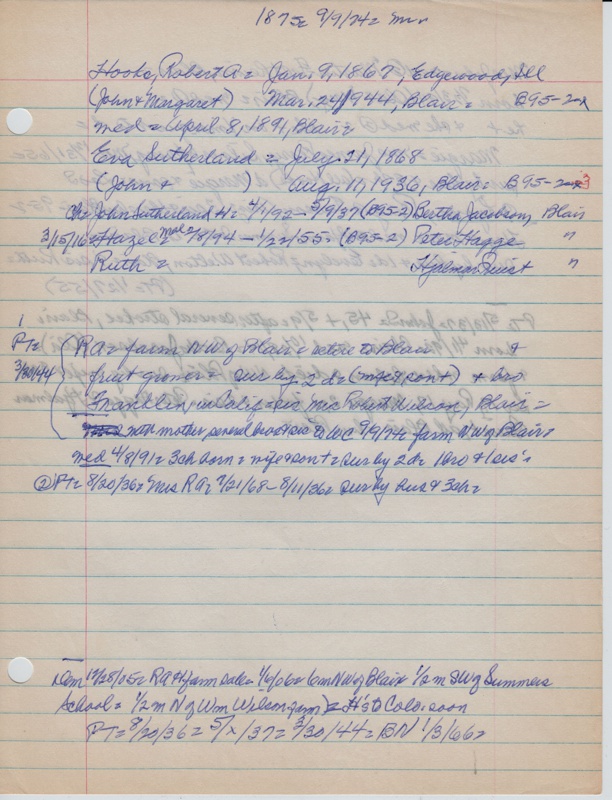 1875= 9/9/74=
Hooks, Robert A = Jan. 9, 1867, Edgewood, Ill
(John & Margaret) Mar. 24, 1944, Blair = B95-2
med = April 8, 1891, Blair =
Eva Sutherland = July 21, 1868
(John & ) Aug. 11, 1936, Blair = B95-2 3
Ch = John Sutherland H = 4/1/92 - 5/9/37 (B95-2) Bertha Jacobson, Blair
3/15/16 = Hazel = 2/8/94 - 1/22/55 = (B95-2) Peter Hagge "
Ruth = Hjalmar Quist "
1
PT = RA = farm NW of Blair = retire to Blair &
3/30/44 fruit grower = sur by 2 da (wife & son +) & bro
Franklin, in Calif = sis, Mrs Robert Wilson, Blair =
with mother several bros & sis to WC 9/9/74 farm NW of Blair =
med 4/8/91 = 3 ch born = wife & son + = sur by 2 da 1 bro & 1 sis =
② PT = 8/20/36 = Mrs RA = 7/21/68 - 8/11/36 = sur by hus & 3 ch =
12/28/05 = RA H farm sale = 1/6/06 = 6 m NW of Blair 1/2 m SW of Summers
School = 1/2 m N of Wm Wilson farm) = H's to Colo soon
PT = 8/20/36 = 5/x/37 = 3/30/44 = BN 1/3/66 =